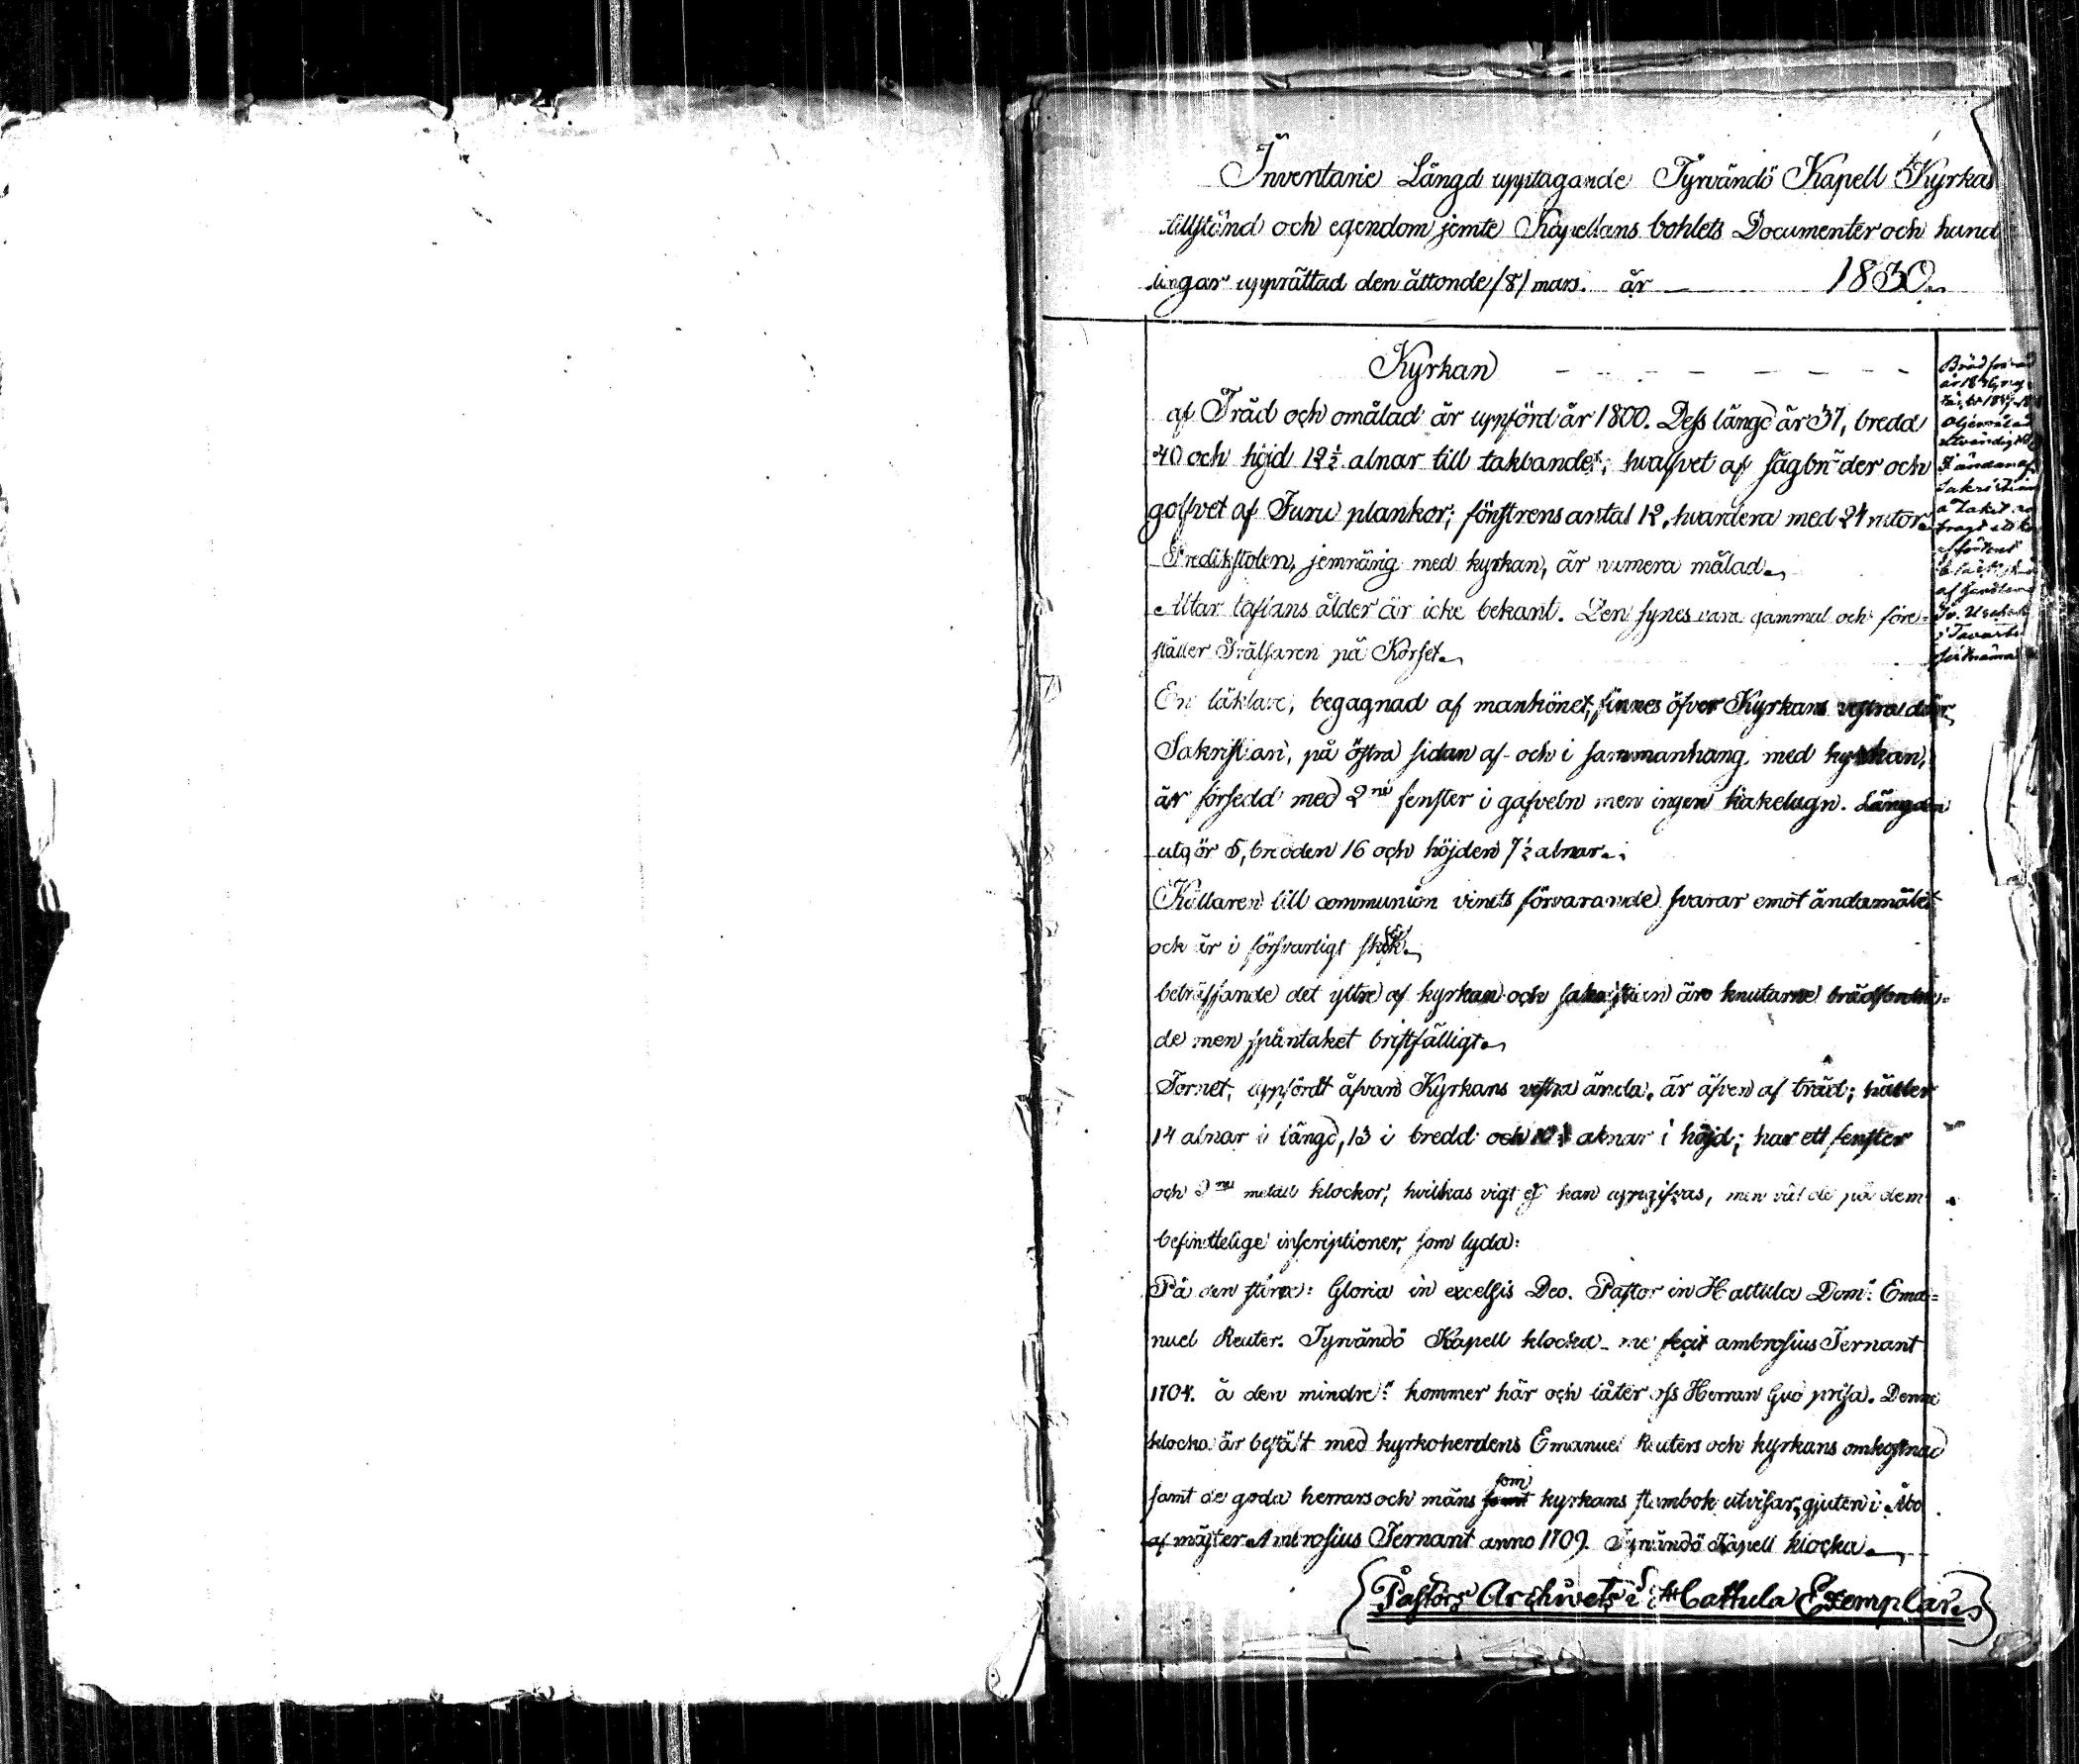 Inventarie Längd upptagande Tyrvändö Kapell Kyrkas
tillstånd och egendom jemte Kapellans bohlets Documenter och hand
lingar upprättad den åttonde /8/ mars. år 1830.
Kyrkan
af Träd och omålad är uppförd år 1800. Dess längd är 37, bredd
40 och höjd 12½ alnar till takbandet; hvalfvet af sågbräder och
golfvet af Furu plankor; fönstrens antal 12, hvardera med 24 rutor.
Predikstolen, jemnårig med kyrkan, är numera målad.
Altar taflans ålder är icke bekant. Den synes vara gammal och före-
ställer Frälsaren på Korset.
En läktare, begagnad af mankönet, finnes öfver Kyrkans vestra dörr,
Sakristian, på östra sidan af- och i sammanhang med kyrkan,
är försedd med 2ne fenster i gafveln men ingen kakelugn. Längden
utgör 5, bredden 16 och höjden 7½ alnar.
Källaren till communion vinets förvarande svarar emot ändamålet
och är i försvarligt skick.
beträffande det yttre af kyrkan och sakristian äro knutarne brädfodra-
de men spåntaket bristfälligt.
Tornet, uppfördt åfvan Kyrkans vestra ända, är äfven af träd; håller
14 alnar i längd, 13 i bredd och alnar i höjd; har ett fenster
och 2ne metall klockor, hvilkas vigt ej kan uppgifvas, men väl de på dem
befinttelige inscriptioner, som lyda:
På den större: Gloria in excelsis Deo. Pastor in Hattula Dom: Ema-
nuel Reuter. Tyrvändö Kapell klocka me fecit ambrosius Fernant
1704. å den mindre: kommer här och låter oss Herran Gud prisa. Denne
klocka är bestält med kyrkoherdens Emanuel Reuters och kyrkans omkostnad
samt de goda herrars och mäns som kyrkans stambok utvisar, gjuten i Åbo
af mäster Ambrosius Fernant anno 1709. Tyrvändö Kapell klocka.
Pastors Archivets i Hattula Exemplar.
Brädfodrad
år 1836,
Oljemålad
utvändigt
Sakristian